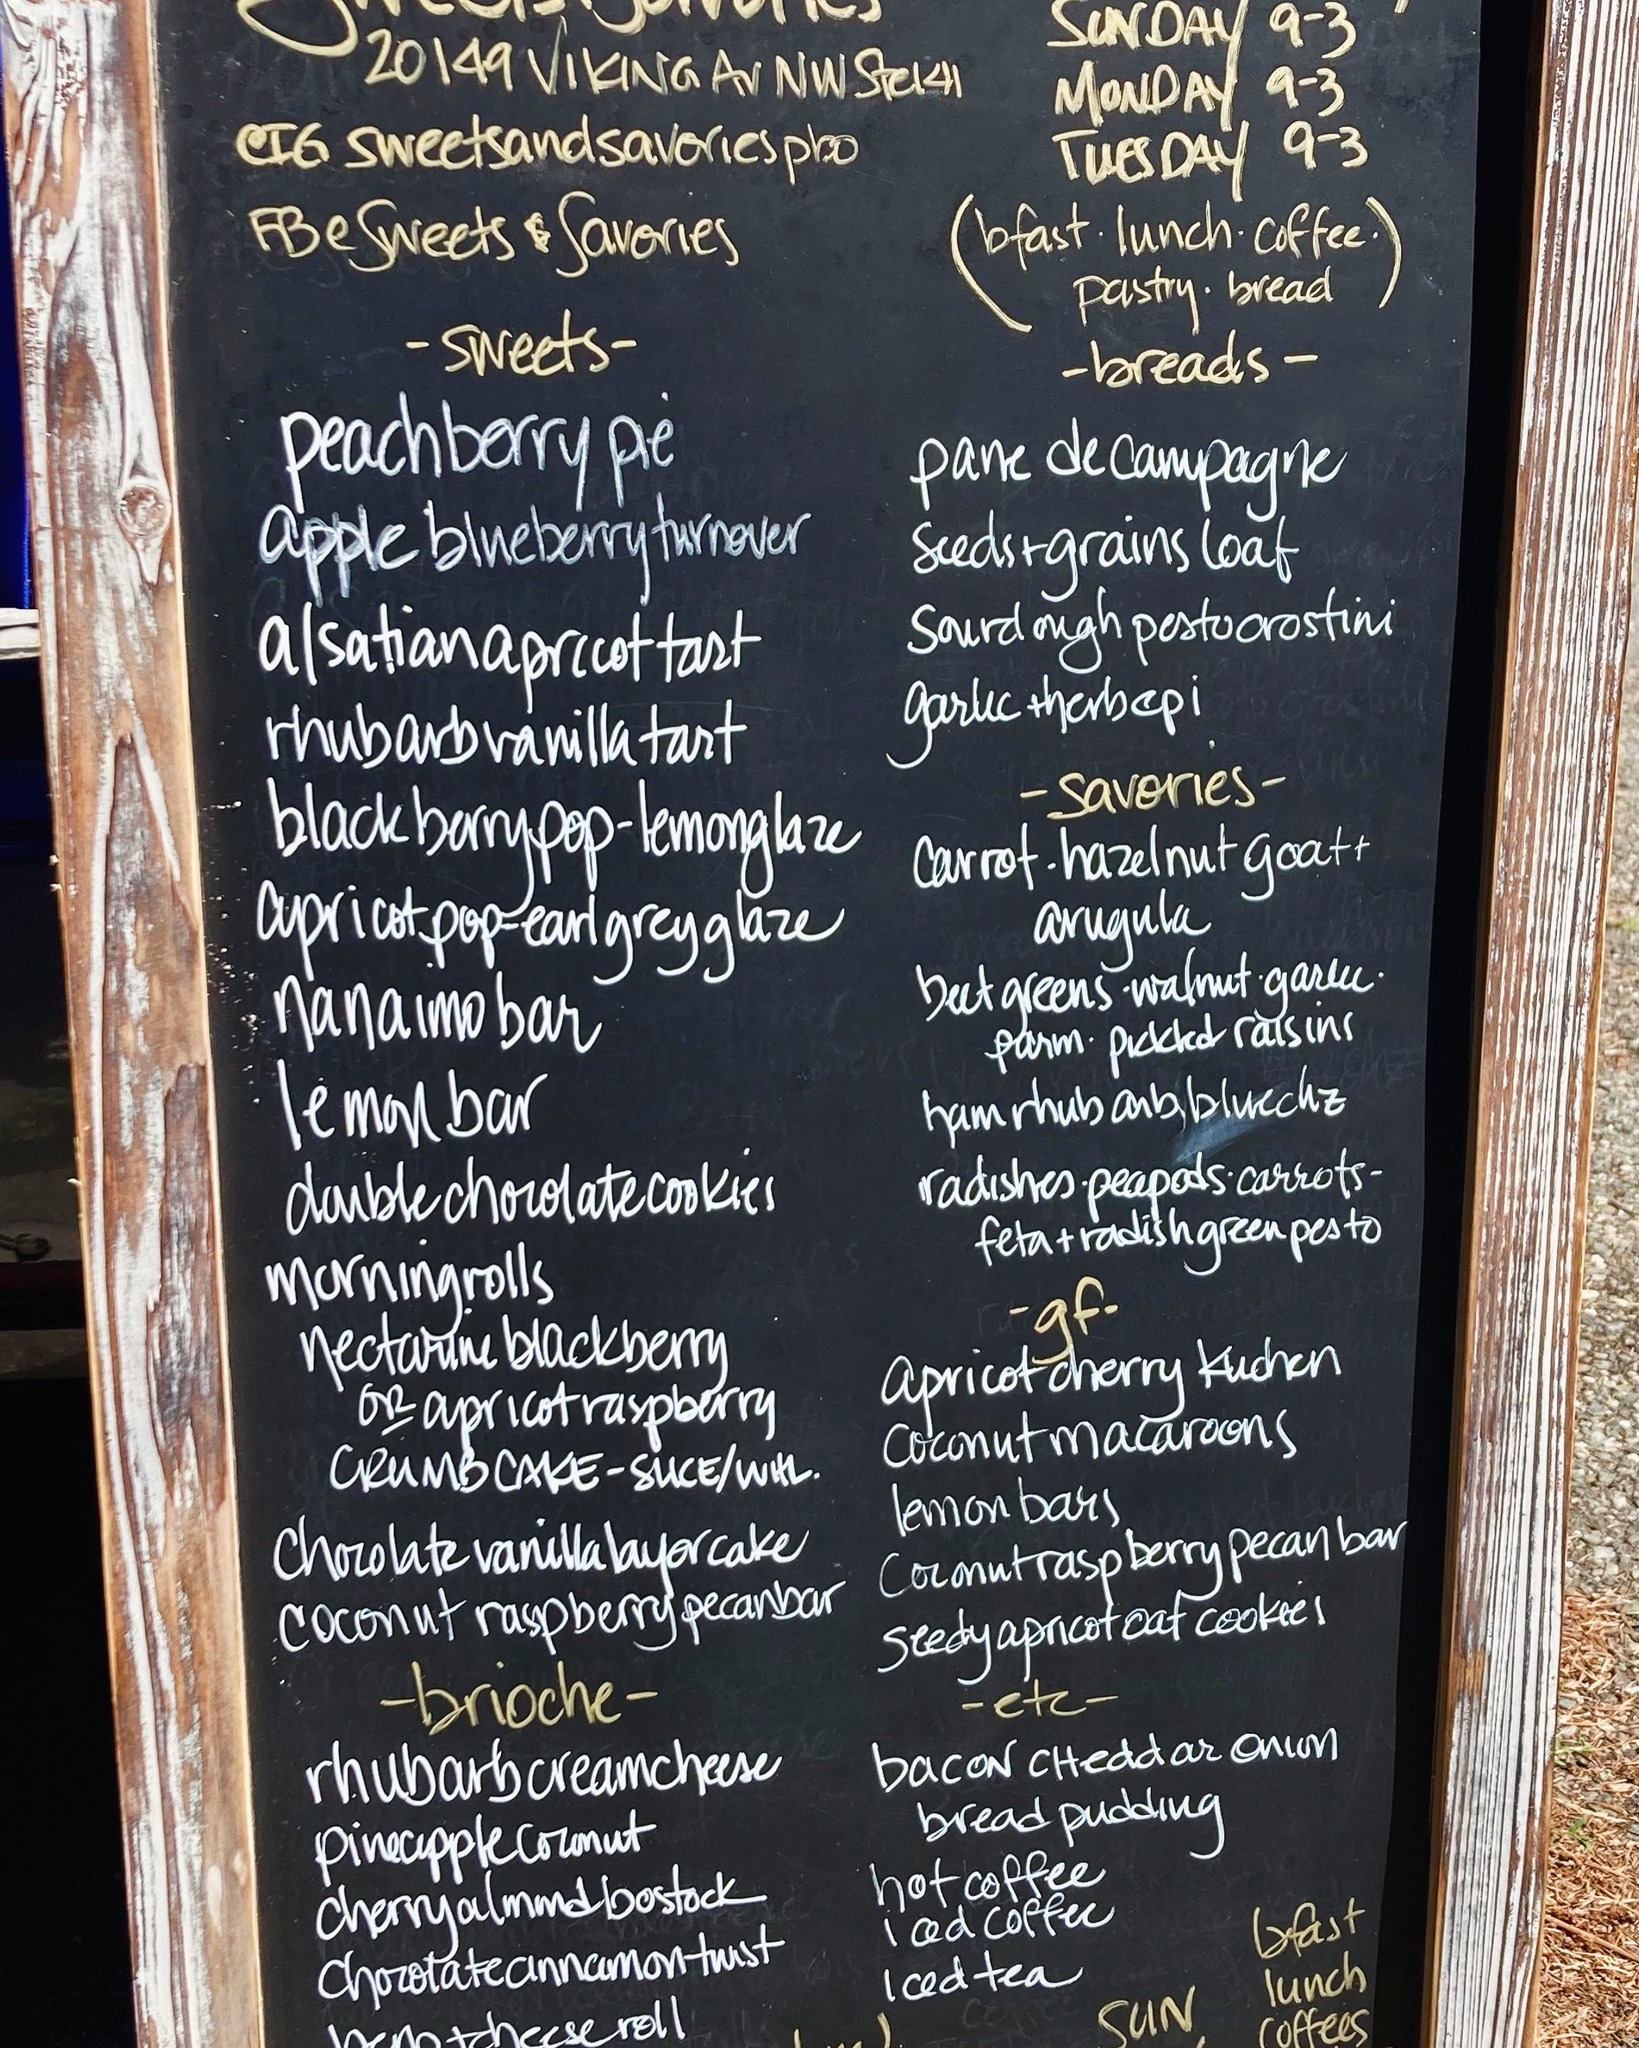 Sweets & Savories
20149 VIKING AV NW Ste 141
@IG sweetsandsavoriespbo
FB @ Sweets & Savories
SUNDAY 9-3
MONDAY 9-3
TUESDAY 9-3
(bfast · lunch · coffee ·
pastry · bread)
- sweets -
peach berry pie
apple blueberry turnover
alsatian apricot tart
rhubarb vanilla tart
blackberry pop - lemon glaze
apricot pop - earl grey glaze
nanaimo bar
lemon bar
double chocolate cookies
morning rolls
nectarine blackberry
OR apricot raspberry
CRUMB CAKE - SLICE/WHL.
chocolate vanilla layer cake
coconut raspberry pecan bar
- brioche -
rhubarb cream cheese
pineapple coconut
cherry almond bostock
chocolate cinnamon twist
herb + cheese roll
- breads -
pane de campagne
seeds + grains loaf
sourdough pesto crostini
garlic + herb epi
- savories -
carrot · hazelnut goat +
arugula
beet greens · walnut · garlic ·
parm · pickled raisins
ham rhubarb, blue chz
radishes · peapods · carrots -
feta + radish green pesto
- gf -
apricot cherry kuchen
coconut macaroons
lemon bars
coconut raspberry pecan bar
seedy apricot oat cookies
- etc -
bacon cheddar onion
bread pudding
hot coffee
iced coffee
iced tea
SUN
bfast
lunch
coffees